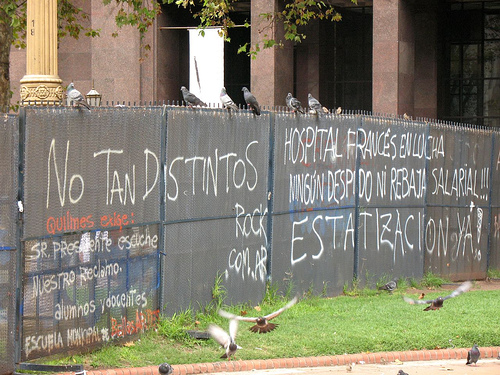 NO TAN DISTINTOS
ROCK
.COM.AR
Quilmes exige!
SR. Presidente escuche
Nuestro Reclamo.
alumnos y docentes
ESCUELA MUNICIPAL DE
HOSPITAL FRANCÉS EN LUCHA
NINGÚN DESPIDO NI REBAJA SALARIAL!!!
ESTATIZACION YA!